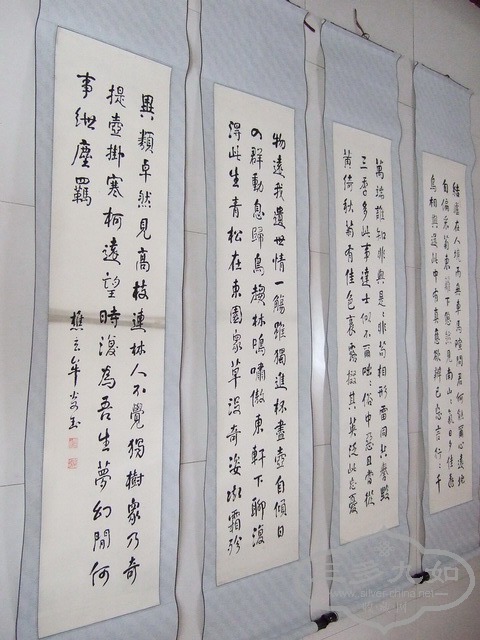 結廬在人境而無車馬喧問君何能爾心遠地
自偏采菊東籬下悠然見南山氣日夕佳飛
鳥相與還此中有真意欲辨已忘言行〻千
萬端誰知非與是〻非苟相形雷同共譽毀
三季多此事達士似不爾咄〻俗中惡且當從
黃綺秋菊有佳色裛露掇其英汎此忘憂
物遠我遺世情一觴雖獨進杯盡壺自傾日
入群動息歸鳥趨林鳴嘯傲東軒下聊復
得此生青松在東園眾草沒奇姿凝霜殄
異類卓然見高枝連林人不覺獨樹眾乃奇
提壺掛寒柯遠望時復為吾生夢幻間何
事紲塵羈
九如